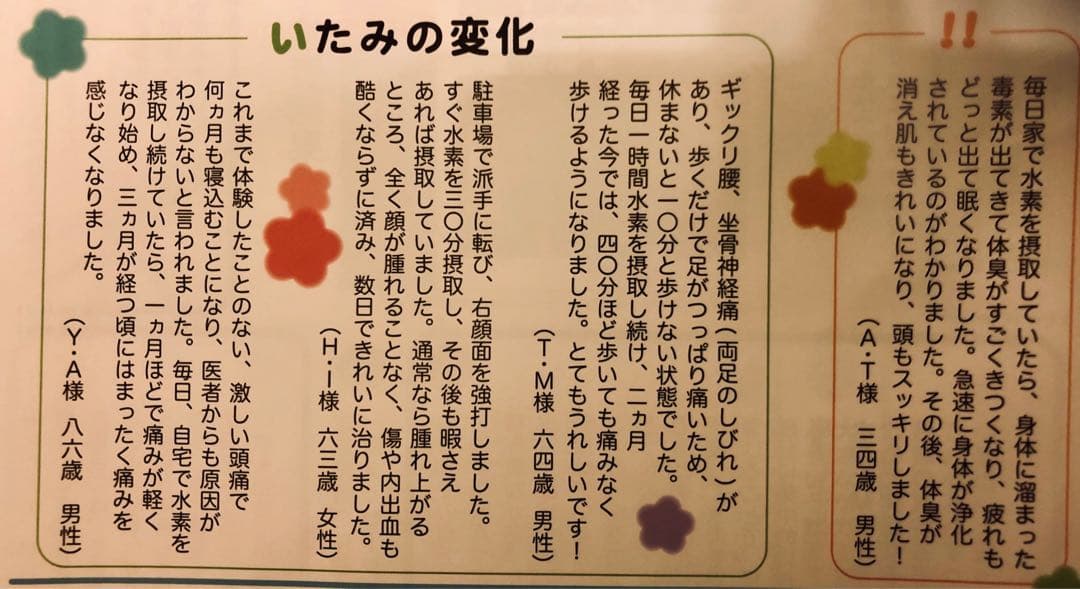 !!
毎日家で水素を摂取していたら、身体に溜まった
毒素が出てきて体臭がすごくきつくなり、疲れも
どっと出て眠くなりました。急速に身体が浄化
されているのがわかりました。その後、体臭が
消え肌もきれいになり、頭もスッキリしました！
（A・T様　三四歳　男性）
いたみの変化
ギックリ腰、坐骨神経痛（両足のしびれ）が
あり、歩くだけで足がつっぱり痛いため、
休まないと一〇分と歩けない状態でした。
毎日一時間水素を摂取し続け、二ヵ月
経った今では、四〇分ほど歩いても痛みなく
歩けるようになりました。とてもうれしいです！
（T・M様　六四歳　男性）
駐車場で派手に転び、右顔面を強打しました。
すぐ水素を三〇分摂取し、その後も暇さえ
あれば摂取していました。通常なら腫れ上がる
ところ、全く顔が腫れることなく、傷や内出血も
酷くならずに済み、数日できれいに治りました。
（H・I様　六三歳　女性）
これまで体験したことのない、激しい頭痛で
何ヵ月も寝込むことになり、医者からも原因が
わからないと言われました。毎日、自宅で水素を
摂取し続けていたら、一ヵ月ほどで痛みが軽く
なり始め、三ヵ月が経つ頃にはまったく痛みを
感じなくなりました。
（Y・A様　八六歳　男性）